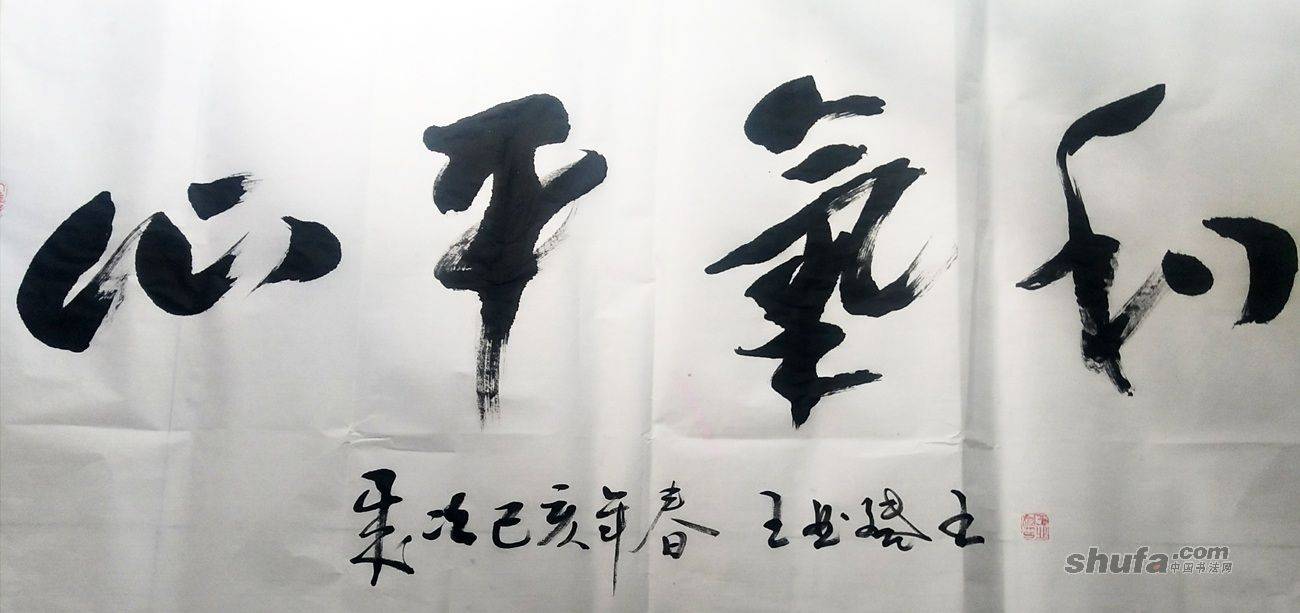 心平氣和
歲次己亥年春 王
shufa.com
中国书法网